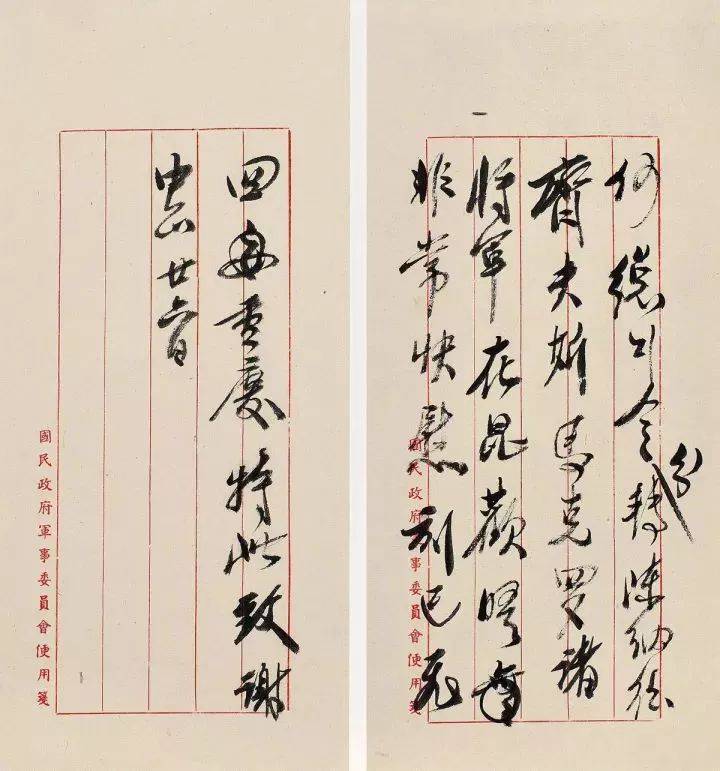 何總司令分轉陳納德
齊夫斯馬克羅諸
將軍在昆歡晤
非常快慰刻已飛
國民政府軍事委員會便用箋
回重慶特此致謝
中正廿六日
國民政府軍事委員會便用箋